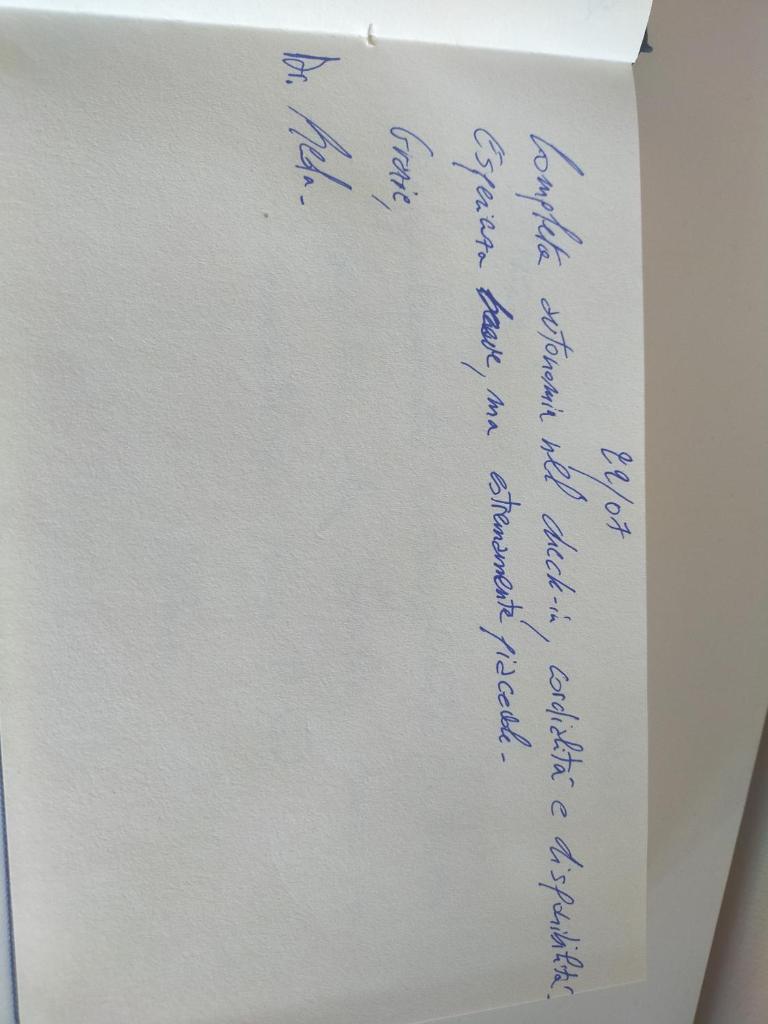 22/07
Completa autonomia nel check-in, cordialità e disponibilità.
Esperienza breve, ma estremamente piacevole.
Grazie,
Dr.